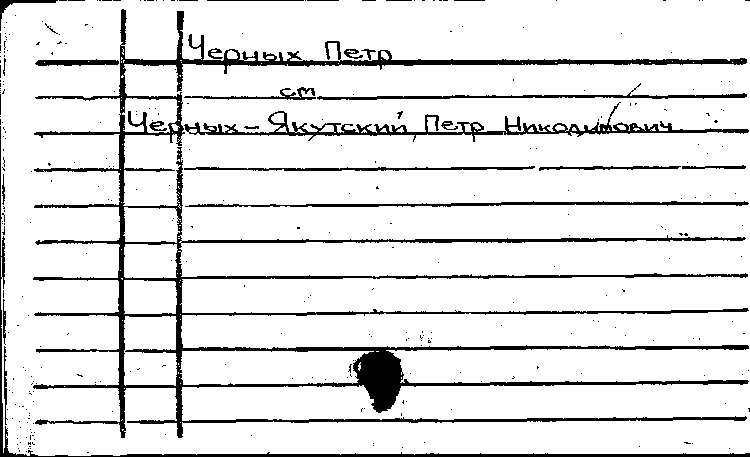 Черных Петр
см
Черных - Якутский, Петр Никодимович